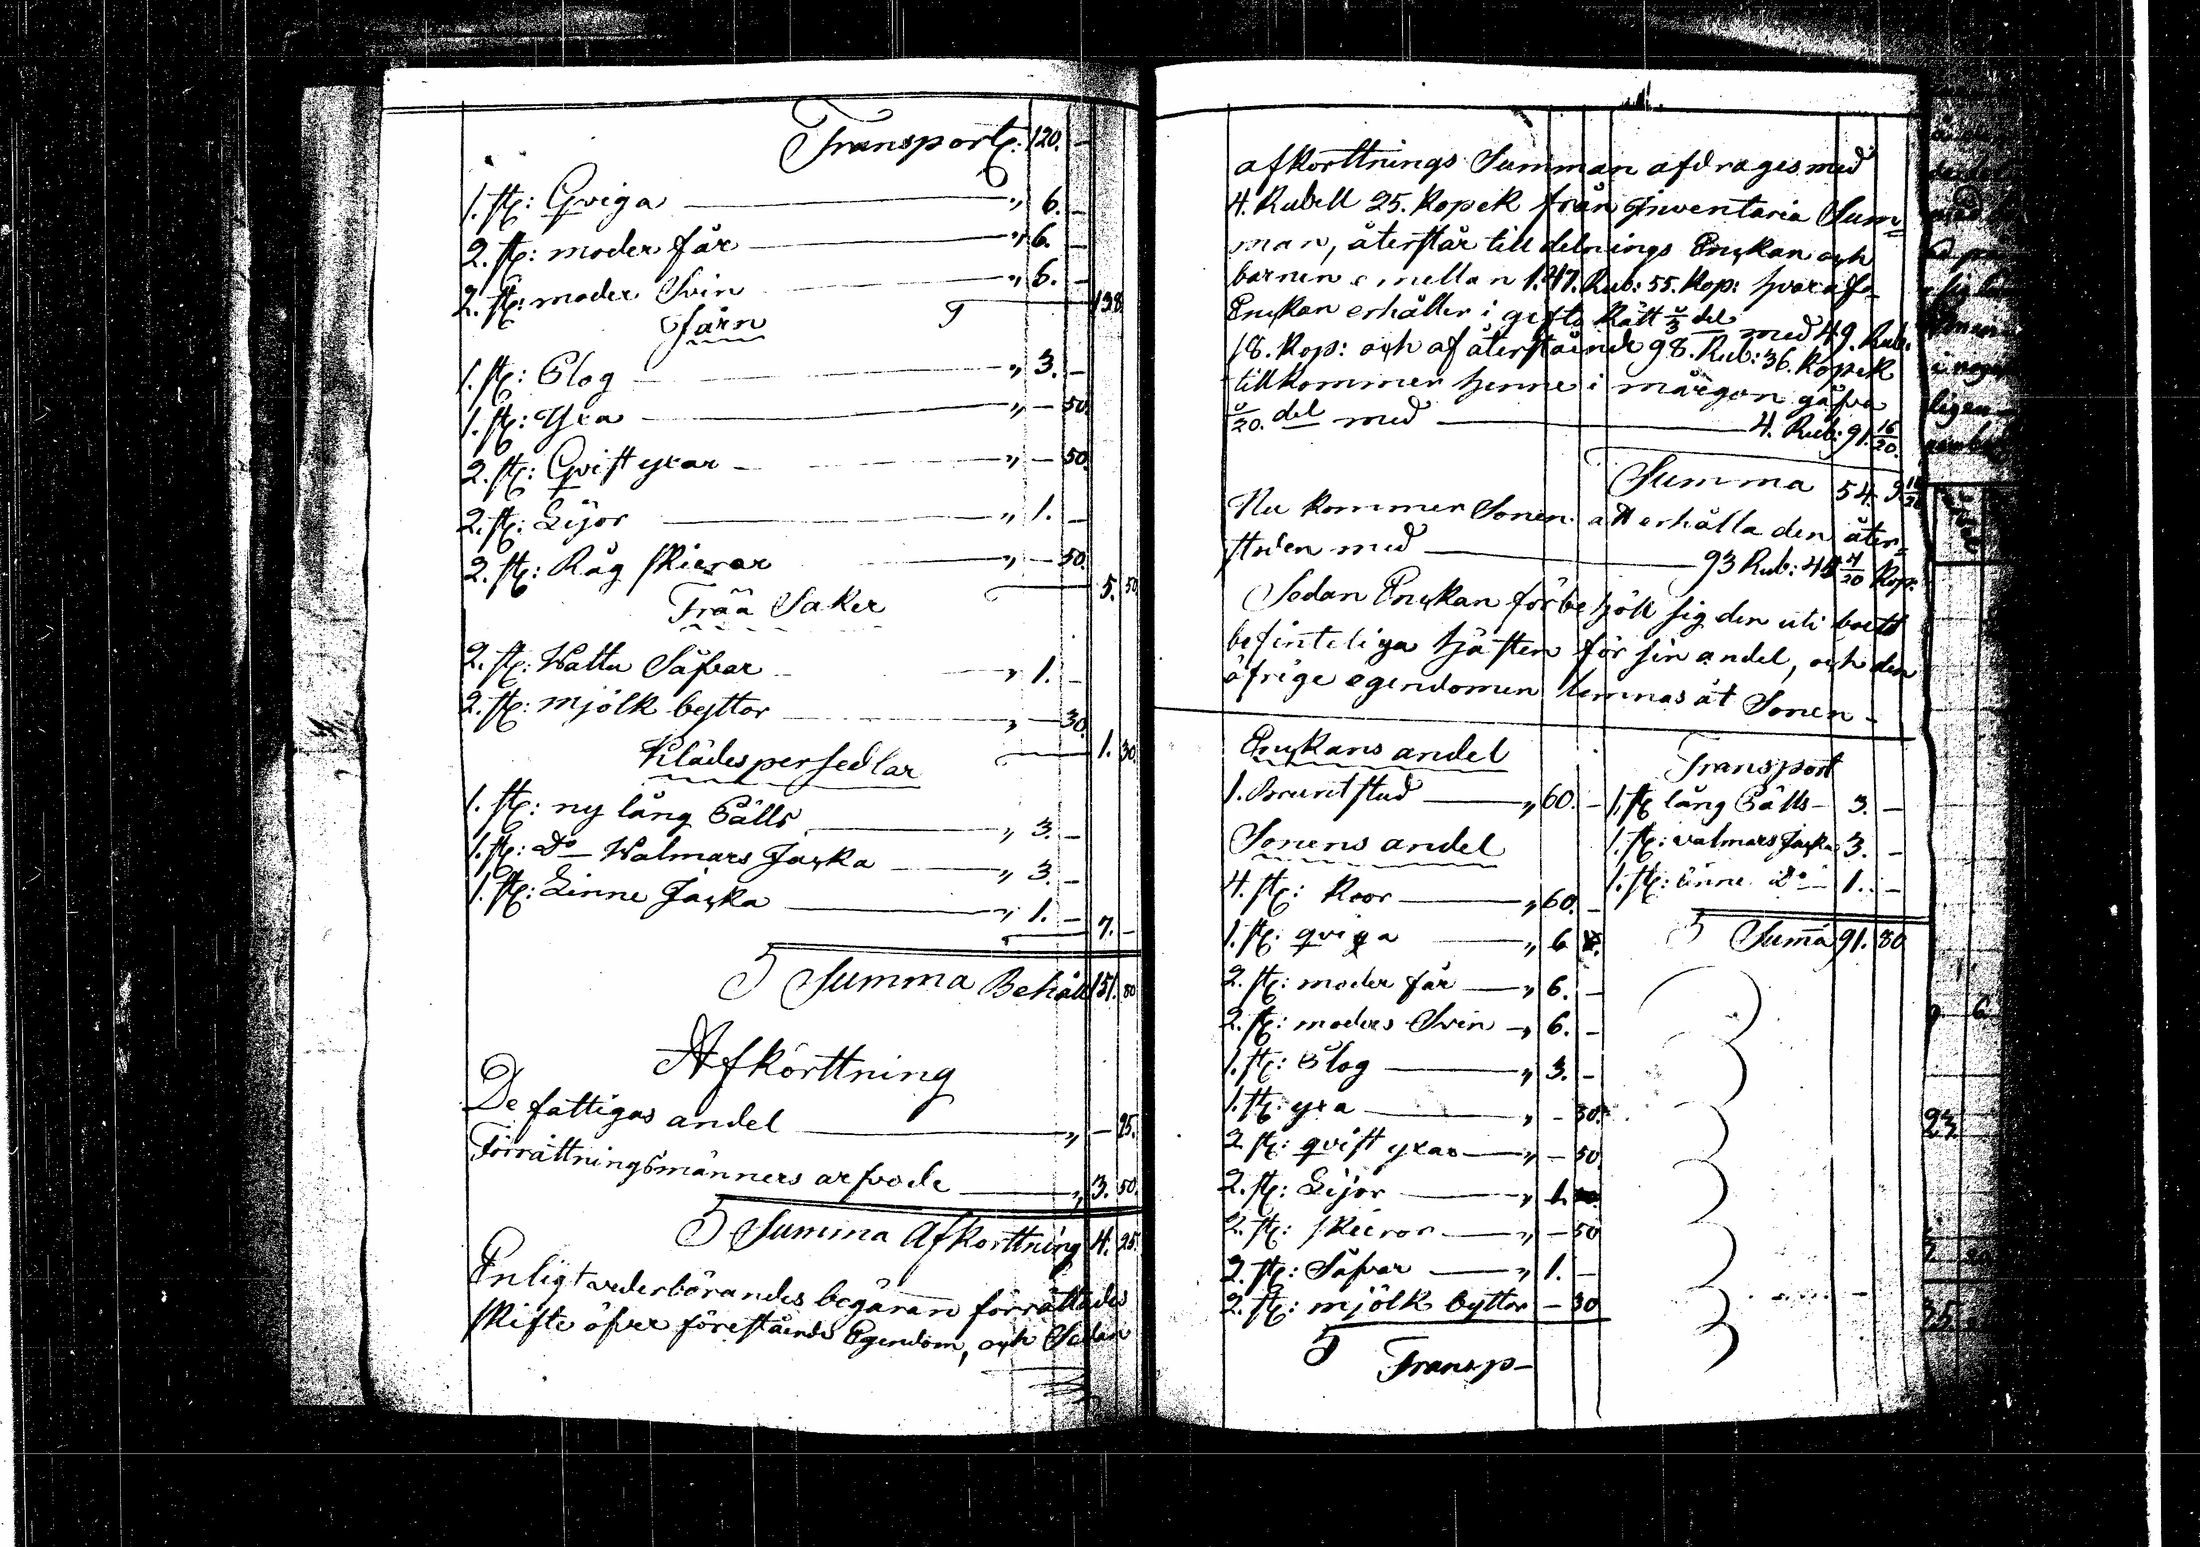 Transport: 120. —
1. st: Qviga — " 6. —
2. st: moder får — " 6. —
2. st: moder Svin — " 6. — 138
Järn
1. st: Plog — " 3. —
1. st: Yxa — " — 50
2. st: Qvist yxar — " — 50.
2. st: Lijor — " 1. —
2. st: Råg skieror — " — 50. 5. 50
Trää Saker
2. st: Wattu Såfvar — " 1. —
2. st: mjölk byttor — " — 30. 1. 30
Klädespersedlar
1. st: ny lång Pälls — " 3. —
1. st: Do Walmars Jacka — " 3. —
1. st: Linne Jacka — " 1. — 7. —
Summa Behåll 151. 80
Afkorttning
De fattigas andel — " — 25.
Förrättningsmänners arfvode — " 3. 50.
Summa Afkorttning 4. 25.
Enligt vederbörandes begäran förrättades
skifte öfver förestående Egendom, och Sedan
afkorttnings Summan afdrages med
4. Rubell 25. Kopek från Inventaria Sum=
man, återstår till delnings Enckan och
barnen emellan 147. Rub: 55. Kop: hvaraf
Enckan erhåller i gifto Rätt 1/3 del med 49. Rub:
18. Kop: och af återstående 98. Rub: 36. Kopek
tillkommer henne i morgon gåfva
1/20. del med — 4. Rub: 91. 16/20.
Summa 54. 9 16/20
Nu kommer Sonen att erhålla den åter=
stoden med — 93 Rub: 45 4/20 Kop:
Sedan Enckan förbehöll sig den uti boett
befinteliga hästen för sin andel, och den
öfrige egendomen lemnas åt Sonen —
Enckans andel
1. Brunt stud — " 60. —
Sonens andel
4. st: Koor — " 60. —
1. st: qviga — " 6
2. st: moder får — " 6. —
2. st: moders Svin — " 6. —
1. st: Plog — " 3. —
1. st: yxa — " — 50.
2 st: qvist yxar — " — 50.
2. st: Lijor — " 1.
2. st: skieror — " — 50
2. st: Såfvar — " 1. —
2. st: mjölk byttor — 30
Transp—
Transport
1. st lång Pälls — 3. —
1. st: valmars Jacka 3. —
1. st: Linne Do — 1. —
Suma 91. 80